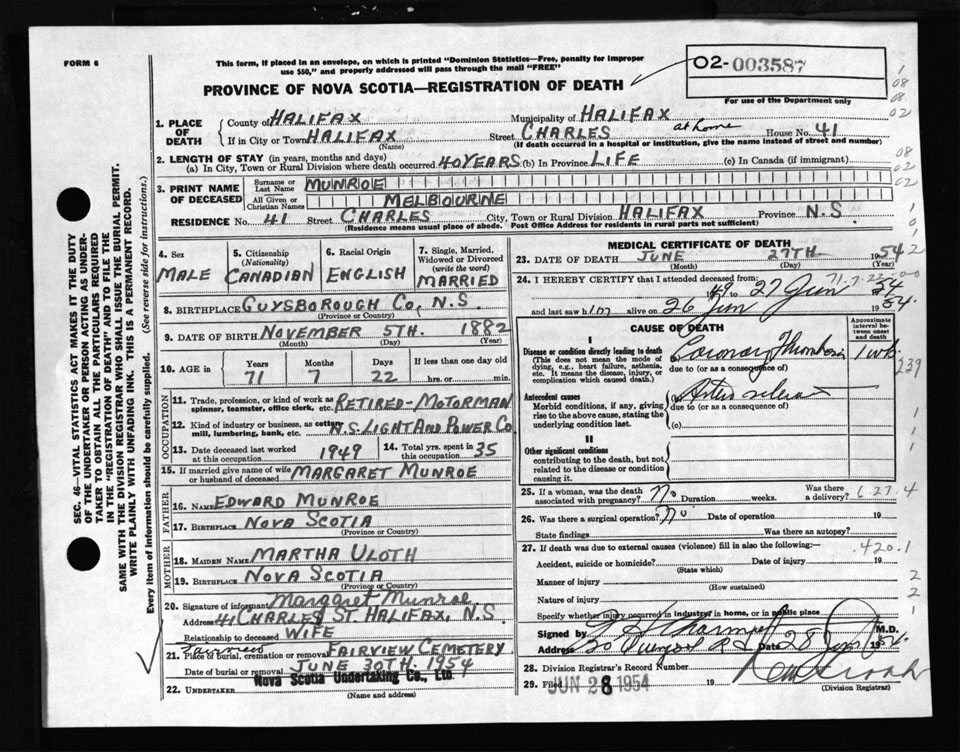 FORM 6
This form, if placed in an envelope, on which is printed "Dominion Statistics—Free, penalty for improper
use $50," and properly addressed will pass through the mail "FREE"
PROVINCE OF NOVA SCOTIA—REGISTRATION OF DEATH
02-003587
For use of the Department only
1. PLACE OF DEATH
County of HALIFAX Municipality of HALIFAX
If in City or Town HALIFAX Street CHARLES at home House No. 41
(Name) (If death occurred in a hospital or institution, give the name instead of street and number)
2. LENGTH OF STAY (in years, months and days)
(a) In City, Town or Rural Division where death occurred 40 YEARS (b) In Province LIFE (c) In Canada (if immigrant)
3. PRINT NAME OF DECEASED
Surname or Last Name MUNROE
All Given or Christian Names MELBOURINE
RESIDENCE No. 41 Street CHARLES City, Town or Rural Division HALIFAX Province N.S.
(Residence means usual place of abode. Post Office Address for residents in rural parts not sufficient)
4. Sex MALE
5. Citizenship (Nationality) CANADIAN
6. Racial Origin ENGLISH
7. Single, Married, Widowed or Divorced (write the word) MARRIED
8. BIRTHPLACE GUYSBOROUGH CO, N.S.
(Province or Country)
9. DATE OF BIRTH NOVEMBER 5TH. 1882
(Month) (Day) (Year)
10. AGE in Years 71 Months 7 Days 22 If less than one day old hrs. or min.
OCCUPATION
11. Trade, profession or kind of work as spinner, teamster, office clerk, etc. RETIRED-MOTORMAN
12. Kind of industry or business, as cotton mill, lumbering, bank, etc. N.S. LIGHT AND POWER CO
13. Date deceased last worked at this occupation 1949
14. Total yrs. spent in this occupation 35
15. If married give name of wife or husband of deceased MARGARET MUNROE
FATHER
16. NAME EDWARD MUNROE
17. BIRTHPLACE NOVA SCOTIA
(Province or Country)
MOTHER
18. MAIDEN NAME MARTHA ULOTH
19. BIRTHPLACE NOVA SCOTIA
(Province or Country)
20. Signature of informant Margaret Munroe
Address 41 CHARLES ST. HALIFAX, N.S.
Relationship to deceased WIFE
Fairview
21. Place of burial, cremation or removal FAIRVIEW CEMETERY
Date of burial or removal JUNE 30TH. 1954
22. UNDERTAKER Nova Scotia Undertaking Co., Ltd.
(Name and address)
MEDICAL CERTIFICATE OF DEATH
23. DATE OF DEATH JUNE 27TH. 1954
(Month) (Day) (Year)
24. I HEREBY CERTIFY that I attended deceased from:
49 to 27 Jun 1954
and last saw him alive on 26 Jun 1954.
CAUSE OF DEATH
Approximate interval between onset and death
I
Disease or condition directly leading to death
(This does not mean the mode of dying, e.g., heart failure, asthenia, etc. It means the disease, injury, or complication which caused death.)
(a) Coronary Thrombosis 1 wk.
due to (or as a consequence of)
Antecedent causes
Morbid conditions, if any, giving rise to the above cause, stating the underlying condition last.
(b)
due to (or as a consequence of)
(c)
II
Other significant conditions
contributing to the death, but not related to the disease or condition causing it.
25. If a woman, was the death associated with pregnancy? No Duration weeks. Was there a delivery?
26. Was there a surgical operation? No Date of operation 19
State findings Was there an autopsy?
27. If death was due to external causes (violence) fill in also the following:—
420.1
Accident, suicide or homicide? Date of injury 19
(State which)
Manner of injury
(How sustained)
Nature of injury
Specify whether injury occurred in industry in home, or in public place
Signed by M.D.
Address Date 28 Jun 1954.
28. Division Registrar's Record Number
29. Filed JUN 28 1954 19
(Division Registrar)
SEC. 46—VITAL STATISTICS ACT MAKES IT THE DUTY
OF THE UNDERTAKER OR PERSON ACTING AS UNDER-
TAKER TO OBTAIN ALL THE PARTICULARS REQUIRED
IN THE "REGISTRATION OF DEATH" AND TO FILE THE
SAME WITH THE DIVISION REGISTRAR WHO SHALL ISSUE THE BURIAL PERMIT.
WRITE PLAINLY WITH UNFADING INK. THIS IS A PERMANENT RECORD.
Every item of information should be carefully supplied. (See reverse side for instructions.)